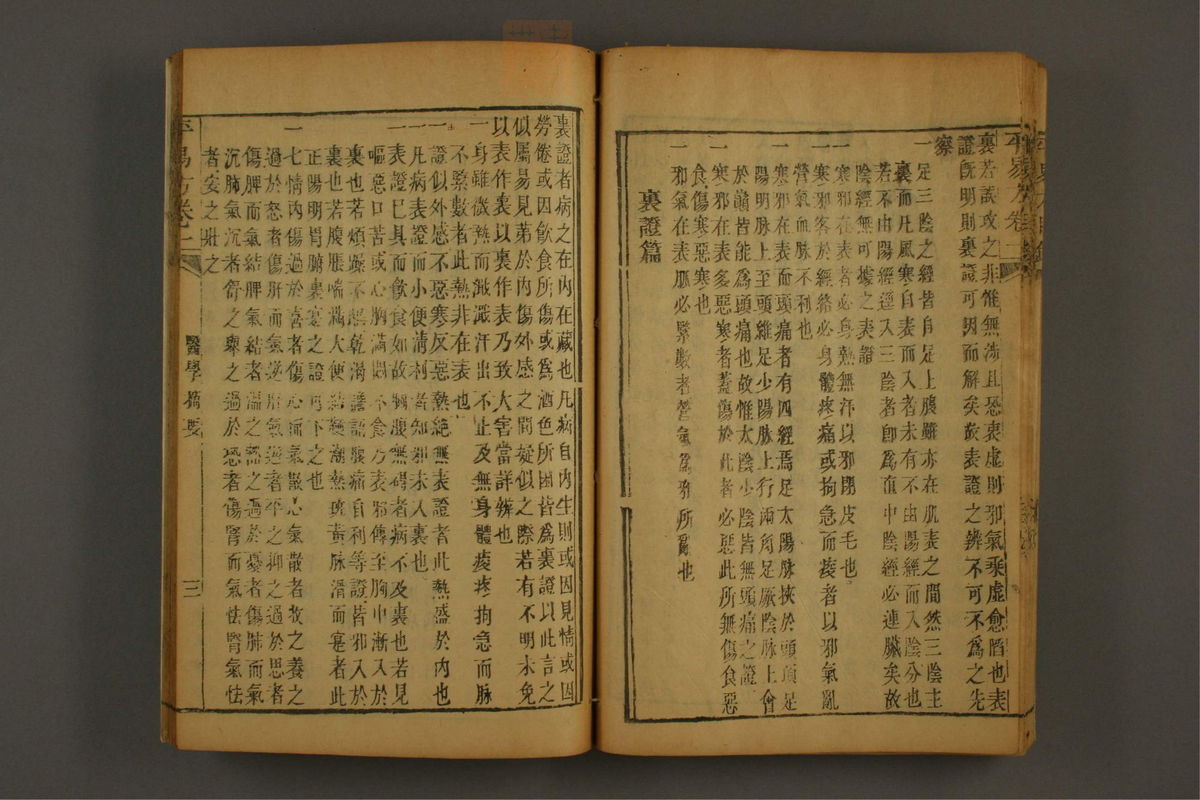 裏若誤攻之非惟無涉且恐表虛則邪氣乘虛愈陷也表
證既明則裏證可因而解矣故表證之辨不可不爲之先
察
一足三陰之經皆自足上腹雖亦在肌表之間然三陰主
裏而凡風寒自表而入者未有不由陽經而入陰分也
若不由陽經逕入三陰者即爲直中陰經必連臟矣故
陰經無可據之表證
一寒邪在表者必身熱無汗以邪閉皮毛也
一寒邪客於經絡必身體疼痛或拘急而痠者以邪氣亂
營氣血脉不利也
一寒邪在表而頭痛者有四經焉足太陽脉挾於頭頂足
陽明脉上至頭維足少陽脉上行兩角足厥陰脉上會
於巔皆能爲頭痛也故惟太陰少陰皆無頭痛之證
一寒邪在表多惡寒者蓋傷於此者必惡此所無傷食惡
食傷寒惡寒也
一邪氣在表脉必緊數者營氣爲邪所爲也
裏證篇
裏證者病之在內在藏也凡病自內生則或因見情或因
勞倦或因飲食所傷或爲酒色所困皆爲裏證以此言之
似屬易見第於內傷外感之間疑似之際若有不明未免
以表作裏以裏作表乃致大害當詳辨也
一身雖微熱而濈濈汗出不止及無身體痠疼拘急而脉
不緊數者此熱非在表也
一證似外感不惡寒反惡熱絕無表證者此熱盛於內也
一凡病表證而小便清利者知邪未入裏也
一表證已具而飲食如故胸腹無碍者病不及裏也若見
嘔惡口苦或心胸滿悶不食乃表邪傳至胸中漸入於
裏也若煩躁不眠乾渴譫語腹痛自利等證皆邪入於
裏也若腹脹喘滿大便結硬潮熱斑黃脉滑而寔者此
正陽明胃腑裏寔之證可下之也
一七情內傷過於喜者傷心而氣散心氣散者收之養之
過於怒者傷肝而氣逆肝氣逆者平之抑之過於思者
傷脾而氣結脾氣結者溫之豁之過於憂者傷肺而氣
沉肺氣沉者舒之舉之過於恐者傷腎而氣怯腎氣怯
者安之壯之
平易方卷一
醫學摘要
三